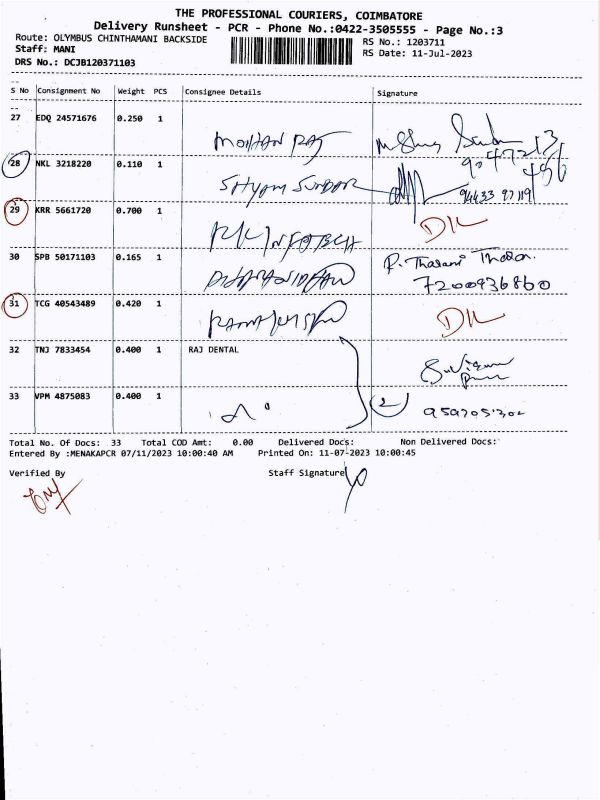 THE PROFESSIONAL COURIERS, COIMBATORE
Delivery Runsheet - PCR - Phone No.:0422-3505555 - Page No.:3
Route: OLYMBUS CHINTHAMANI BACKSIDE
RS No.: 1203711
Staff: MANI
RS Date: 11-Jul-2023
DRS No.: DCJB120371103
S No Consignment No Weight PCS Consignee Details Signature
27 EDQ 24571676 0.250 1
MOHAN RAJ
28 NKL 3218220 0.110 1
SHYAM SUNDAR
29 KRR 5661720 0.700 1
RK INFOTECH
30 SPB 50171103 0.165 1
7200936860
31 TCG 40543489 0.420 1
32 TNJ 7833454 0.400 1 RAJ DENTAL
33 VPM 4875083 0.400 1
2
Total No. Of Docs: 33 Total COD Amt: 0.00 Delivered Docs: Non Delivered Docs:
Entered By :MENAKAPCR 07/11/2023 10:00:40 AM Printed On: 11-07-2023 10:00:45
Verified By Staff Signature